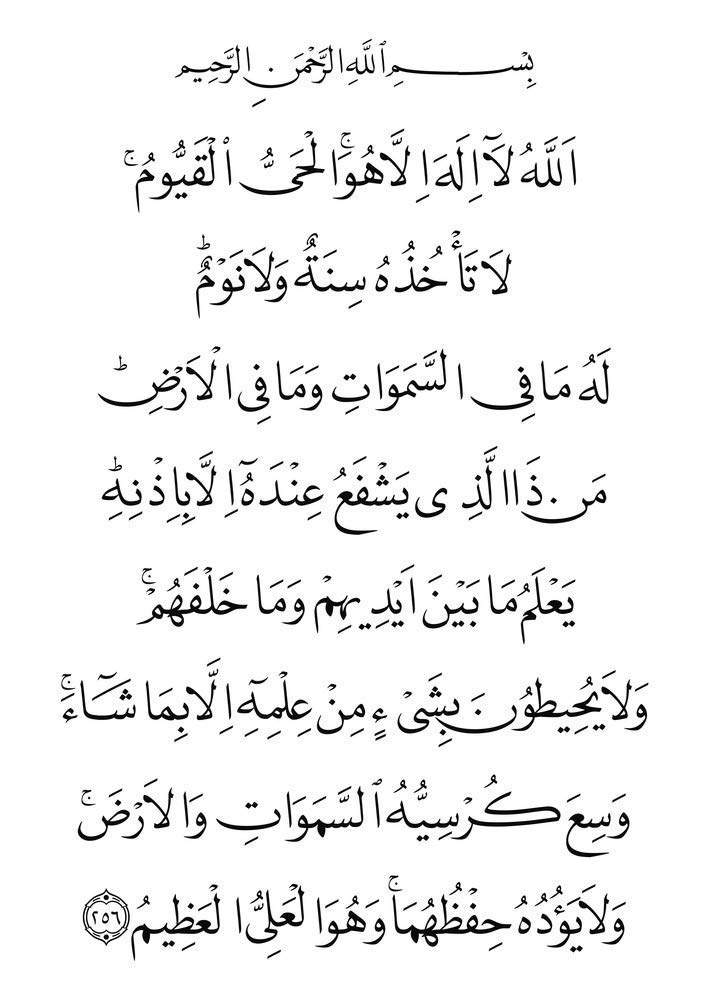 بِسْمِ ٱللَّهِ الرَّحْمَنِ الرَّحِيمِ
اَللَّهُ لَآ اِلَهَ اِلَّا هُوَۚ الْحَىُّ ٱلْقَيُّومُۚ
لَا تَأْخُذُهُ سِنَةٌ وَلَا نَوْمٌؕ
لَهُ مَا فِى السَّمَوَاتِ وَمَا فِى الْاَرْضِؕ
مَن ذَا الَّذِى يَشْفَعُ عِنْدَهُٓ اِلَّا بِاِذْنِهِؕ
يَعْلَمُ مَا بَيْنَ اَيْدِيهِمْ وَمَا خَلْفَهُمْۚ
وَلَا يُحِيطُونَ بِشَىْءٍ مِنْ عِلْمِهِٓ اِلَّا بِمَا شَآءَۚ
وَسِعَ كُرْسِيُّهُ ٱلسَّمَوَاتِ وَالاَرْضَۚ
وَلَا يَؤُدُهُ حِفْظُهُمَاۚ وَهُوَ الْعَلِىُّ الْعَظِيمُ ﴿٢٥٦﴾